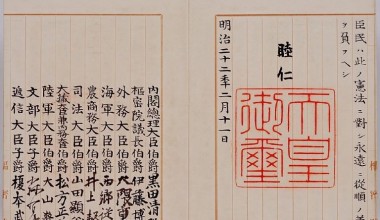 臣民ハ此ノ憲法ニ對シ永遠ニ從順ノ
ヲ負フヘシ
睦仁
天皇
御璽
明治二十二年二月十一日
内閣總理大臣伯爵黒田清
樞密院議長伯爵伊藤博
外務大臣伯爵大隈
海軍大臣伯爵西郷從
農商務大臣伯爵井上
司法大臣伯爵山田顯
大藏大臣兼内務大臣伯爵松方正
陸軍大臣伯爵大山
文部大臣子爵森
遞信大臣子爵榎本武